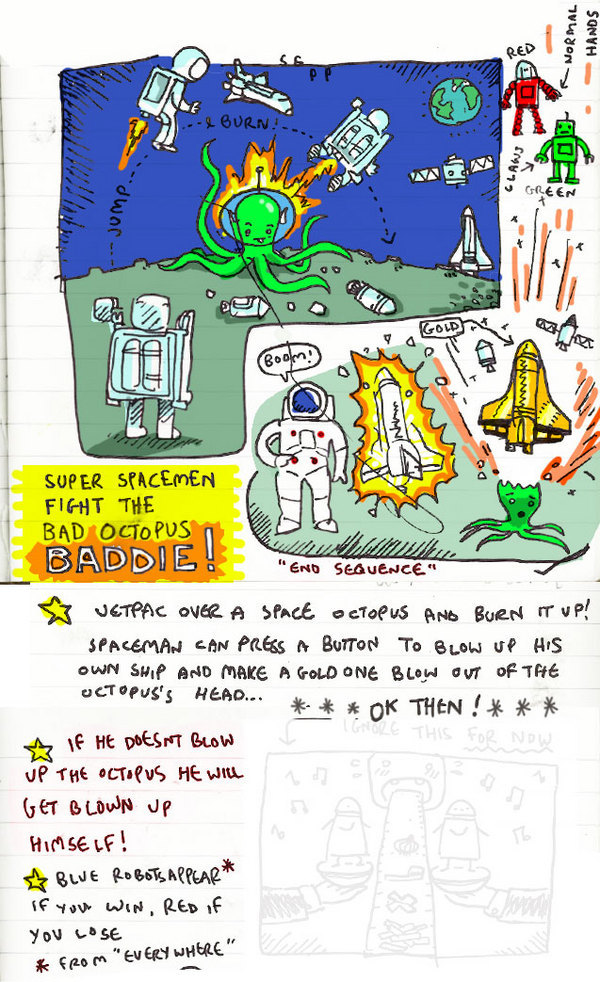 RED
NORMAL
HANDS
& BURN
JUMP
CLAWS
GREEN
GOLD
BOOM!
SUPER SPACEMEN
FIGHT THE
BAD OCTOPUS
BADDIE!
"END SEQUENCE"
JETPAC OVER A SPACE OCTOPUS AND BURN IT UP!
SPACEMAN CAN PRESS A BUTTON TO BLOW UP HIS
OWN SHIP AND MAKE A GOLD ONE BLOW OUT OF THE
OCTOPUS'S HEAD...
* * * OK THEN! * * *
IGNORE THIS FOR NOW
IF HE DOESNT BLOW
UP THE OCTOPUS HE WILL
GET BLOWN UP
HIMSELF!
BLUE ROBOTS APPEAR*
IF YOU WIN, RED IF
YOU LOSE
* FROM "EVERYWHERE"